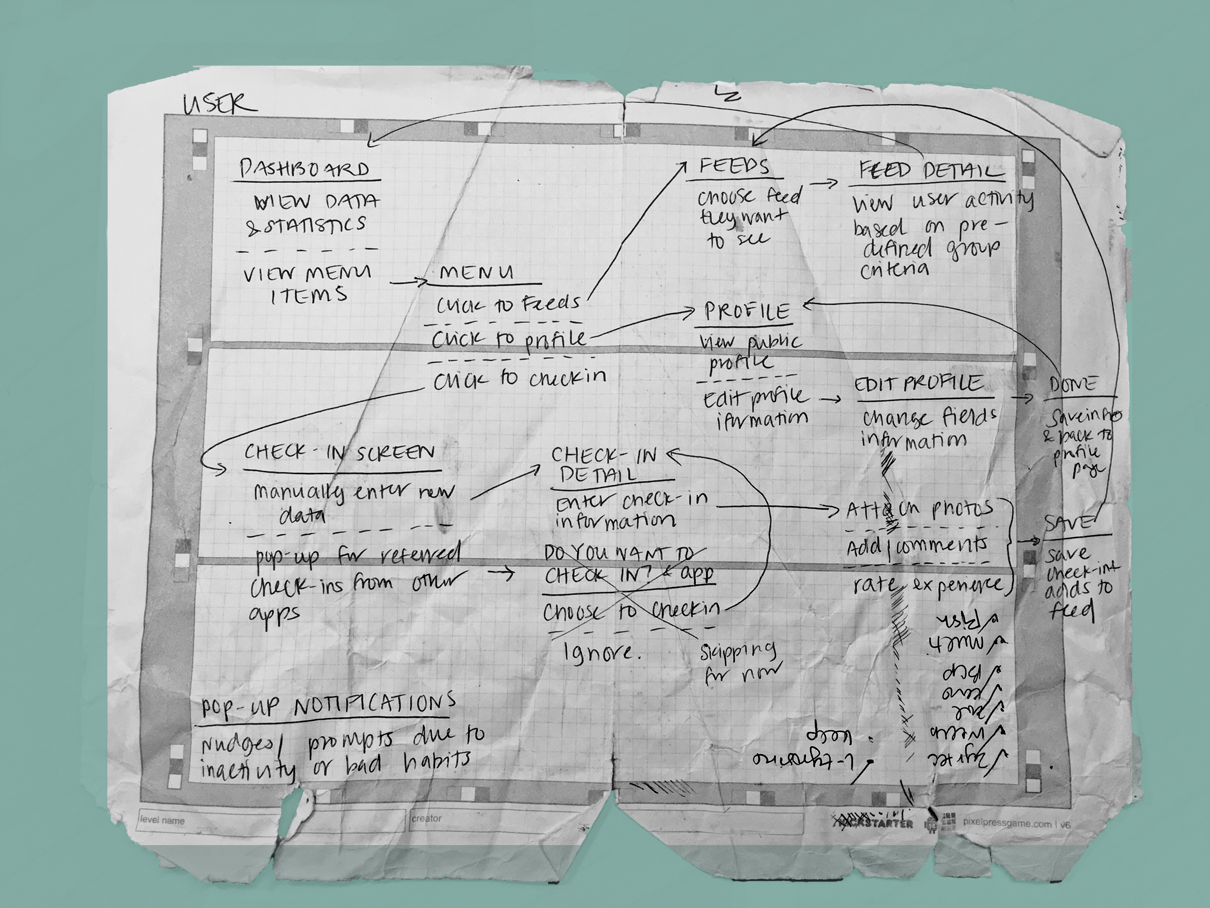 USER
DASHBOARD
VIEW DATA
& STATISTICS
VIEW MENU
ITEMS
MENU
Click to Feeds
Click to profile
Click to checkin
FEEDS
choose feed
they want
to see
FEED DETAIL
view user activity
based on pre-
defined group
criteria
PROFILE
View public
profile
Edit profile
ifnrmation
EDIT PROFILE
change fields
information
DONE
Save info
& back to
profile
page
CHECK-IN SCREEN
manually enter new
data
pop-up for referred
check-ins from other
apps
CHECK-IN
DETAIL
Enter check-in
information
DO YOU WANT TO
CHECK IN? & app
Choose to checkin
Ignore.
Skipping
for now
Attach photos
Add comments
rate experience
SAVE
save
check-in &
adds to
feed
POP-UP NOTIFICATIONS
Nudges/ prompts due to
inactivity or bad habits
Zyrtec
L-tyrosine
level name
creator
KICKSTARTER
pixelpressgame.com | v6